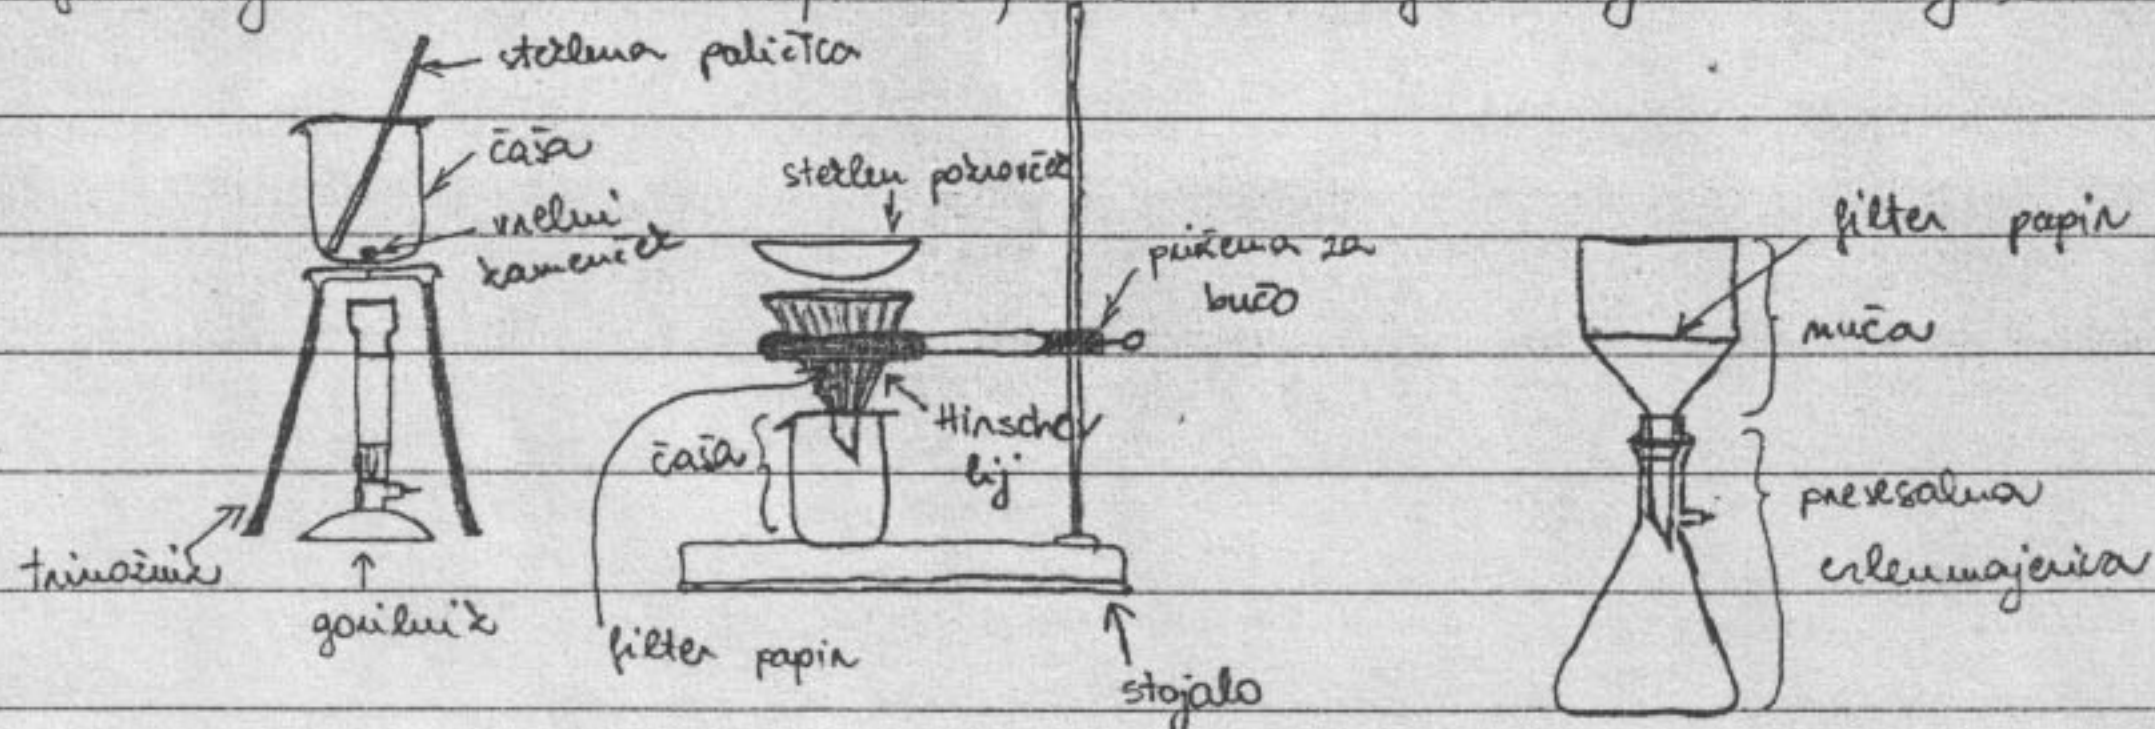 steklena palička
čaša
vrelni
kamenček
trinožnik
gorilnik
steklen pokrovček
prižema za
bučo
Hirschov
lij
čaša
filter papir
stojalo
filter papir
nuča
presesalna
erlenmajerica